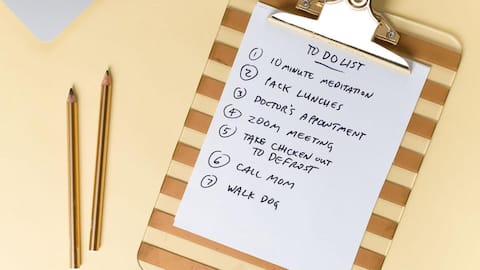 TO DO LIST
① 10 MINUTE MEDITATION
② PACK LUNCHES
③ DOCTOR'S APPOINTMENT
④ ZOOM MEETING
⑤ TAKE CHICKEN OUT
TO DEFROST
⑥ CALL MOM
⑦ WALK DOG